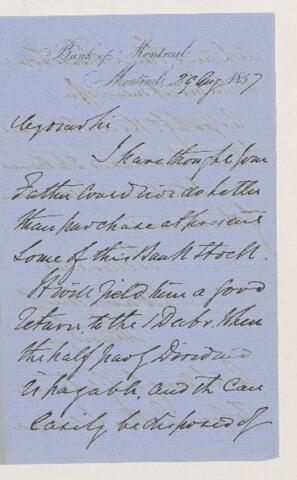 Bank of Montreal
Montreal, 29 Aug 1857
My dear Sir
I have thought your
Father could not do better
than purchase at present
Some of this Bank Stock.
It will yield him a good
return to the 1 Decbr. When
the half yearly Dividend
is payable, and it can
easily be disposed of